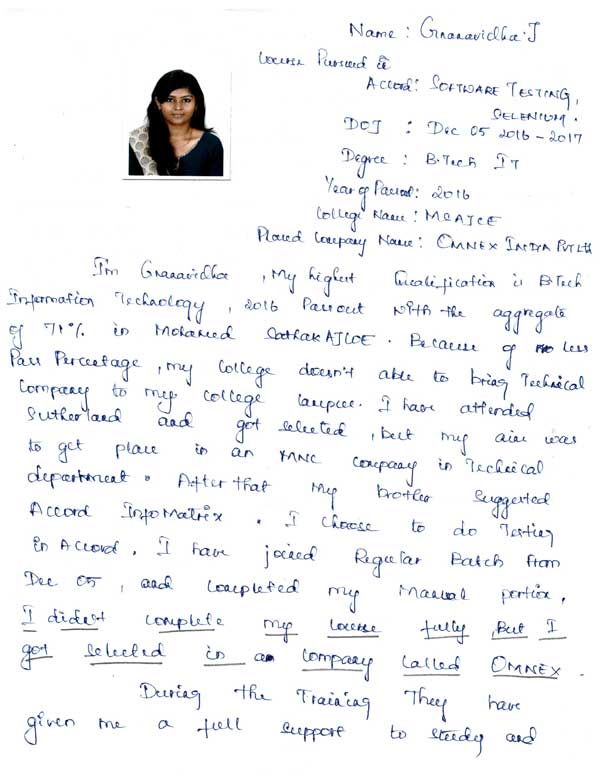 Name : Gnanavidha.J
Course Pursued in
Accord: SOFTWARE TESTING,
SELENIUM.
DOJ : Dec 05 2016 - 2017
Degree : B.Tech IT
Year of Passout: 2016
College Name : MSAJCE
Placed Company Name: OMNEX INDIA PVT LTD
I'm Gnanavidha , My highest Qualification is B.Tech
Information Technology , 2016 Passout with the aggregate
of 71% in Mohamed Sathak AJCOE . Because of less
Pass Percentage , my college doesn't able to bring Technical
Company to my college campus. I have attended
Sutherland and got selected , but my aim was
to get place in an MNC company in Technical
department. After that my brother suggested
Accord InfoMatrix . I choose to do Testing
in Accord. I have joined Regular Batch from
Dec 05 , and completed my Manual portion,
I didn't complete my course fully , But I
got selected in a company called OMNEX.
During the Training They have
given me a full support to study and